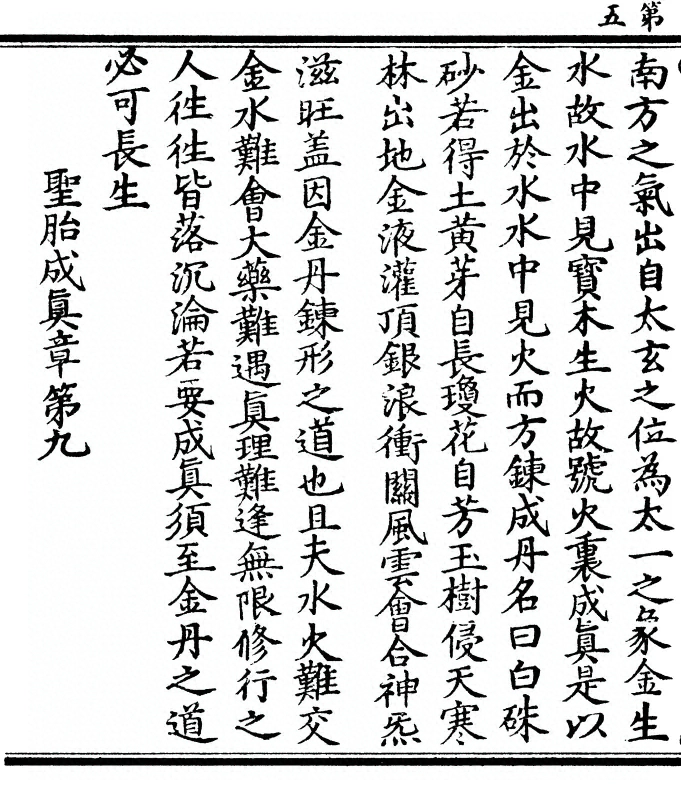 第五
南方之氣出自太玄之位為太一之象金生
水故水中見寶木生火故號火裏成眞是以
金出於水水中見火而方鍊成丹名曰白硃
砂若得土黃芽自長瓊花自芳玉樹侵天寒
林出地金液灌頂銀浪衝關風雲會合神炁
滋旺盖因金丹鍊形之道也且夫水火難交
金水難會大藥難遇眞理難逢無限修行之
人徃徃皆落沉淪若要成眞須至金丹之道
必可長生
聖胎成眞章第九